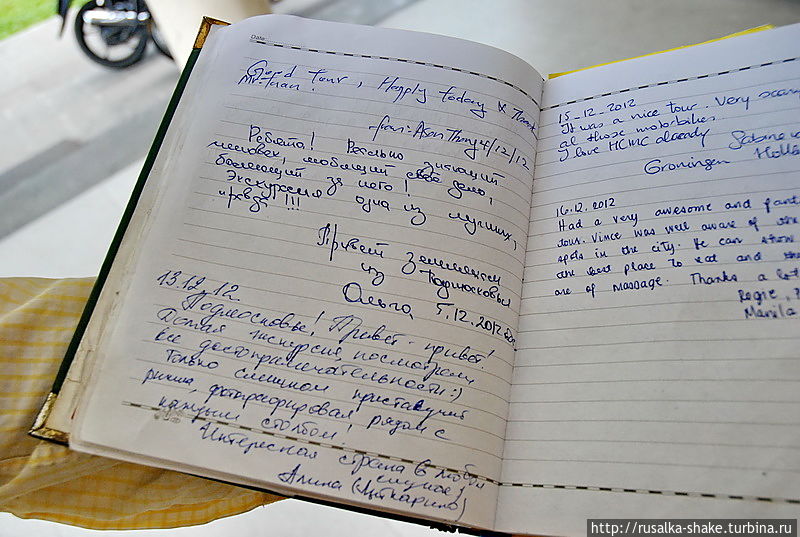 Date:
Good tour, Happly today & Thank
Mr. Tran.
from: Asan Thong 4/12/12
Ребята! Реально знающий
человек, любящий своё дело,
болеющий за него!
Экскурсия одна из лучших,
правда!!!
Привет землякам
из Подмосковья
Ольга 5.12.2012
13.12.12
Подмосковье! Привет-привет!
Клёвая экскурсия, посмотрели
все достопримечательности :)
Только слишком приставучий
рикша, фотографировал рядом с
каждым столбом!
Интересная страна в любом
случае)
Алина (Лыткарино)
15-12-2012
It was a nice tour. Very scary
al those motorbikes
I love HCMC already
Sabine
Groningen Holla
16.12.2012
Had a very awesome and fant
tour. Vince was well aware of the
spots in the city. He can show
the best place to eat and the
are of massage. Thanks a lot
Regie,
Manila
http://rusalka-shake.turbina.ru/